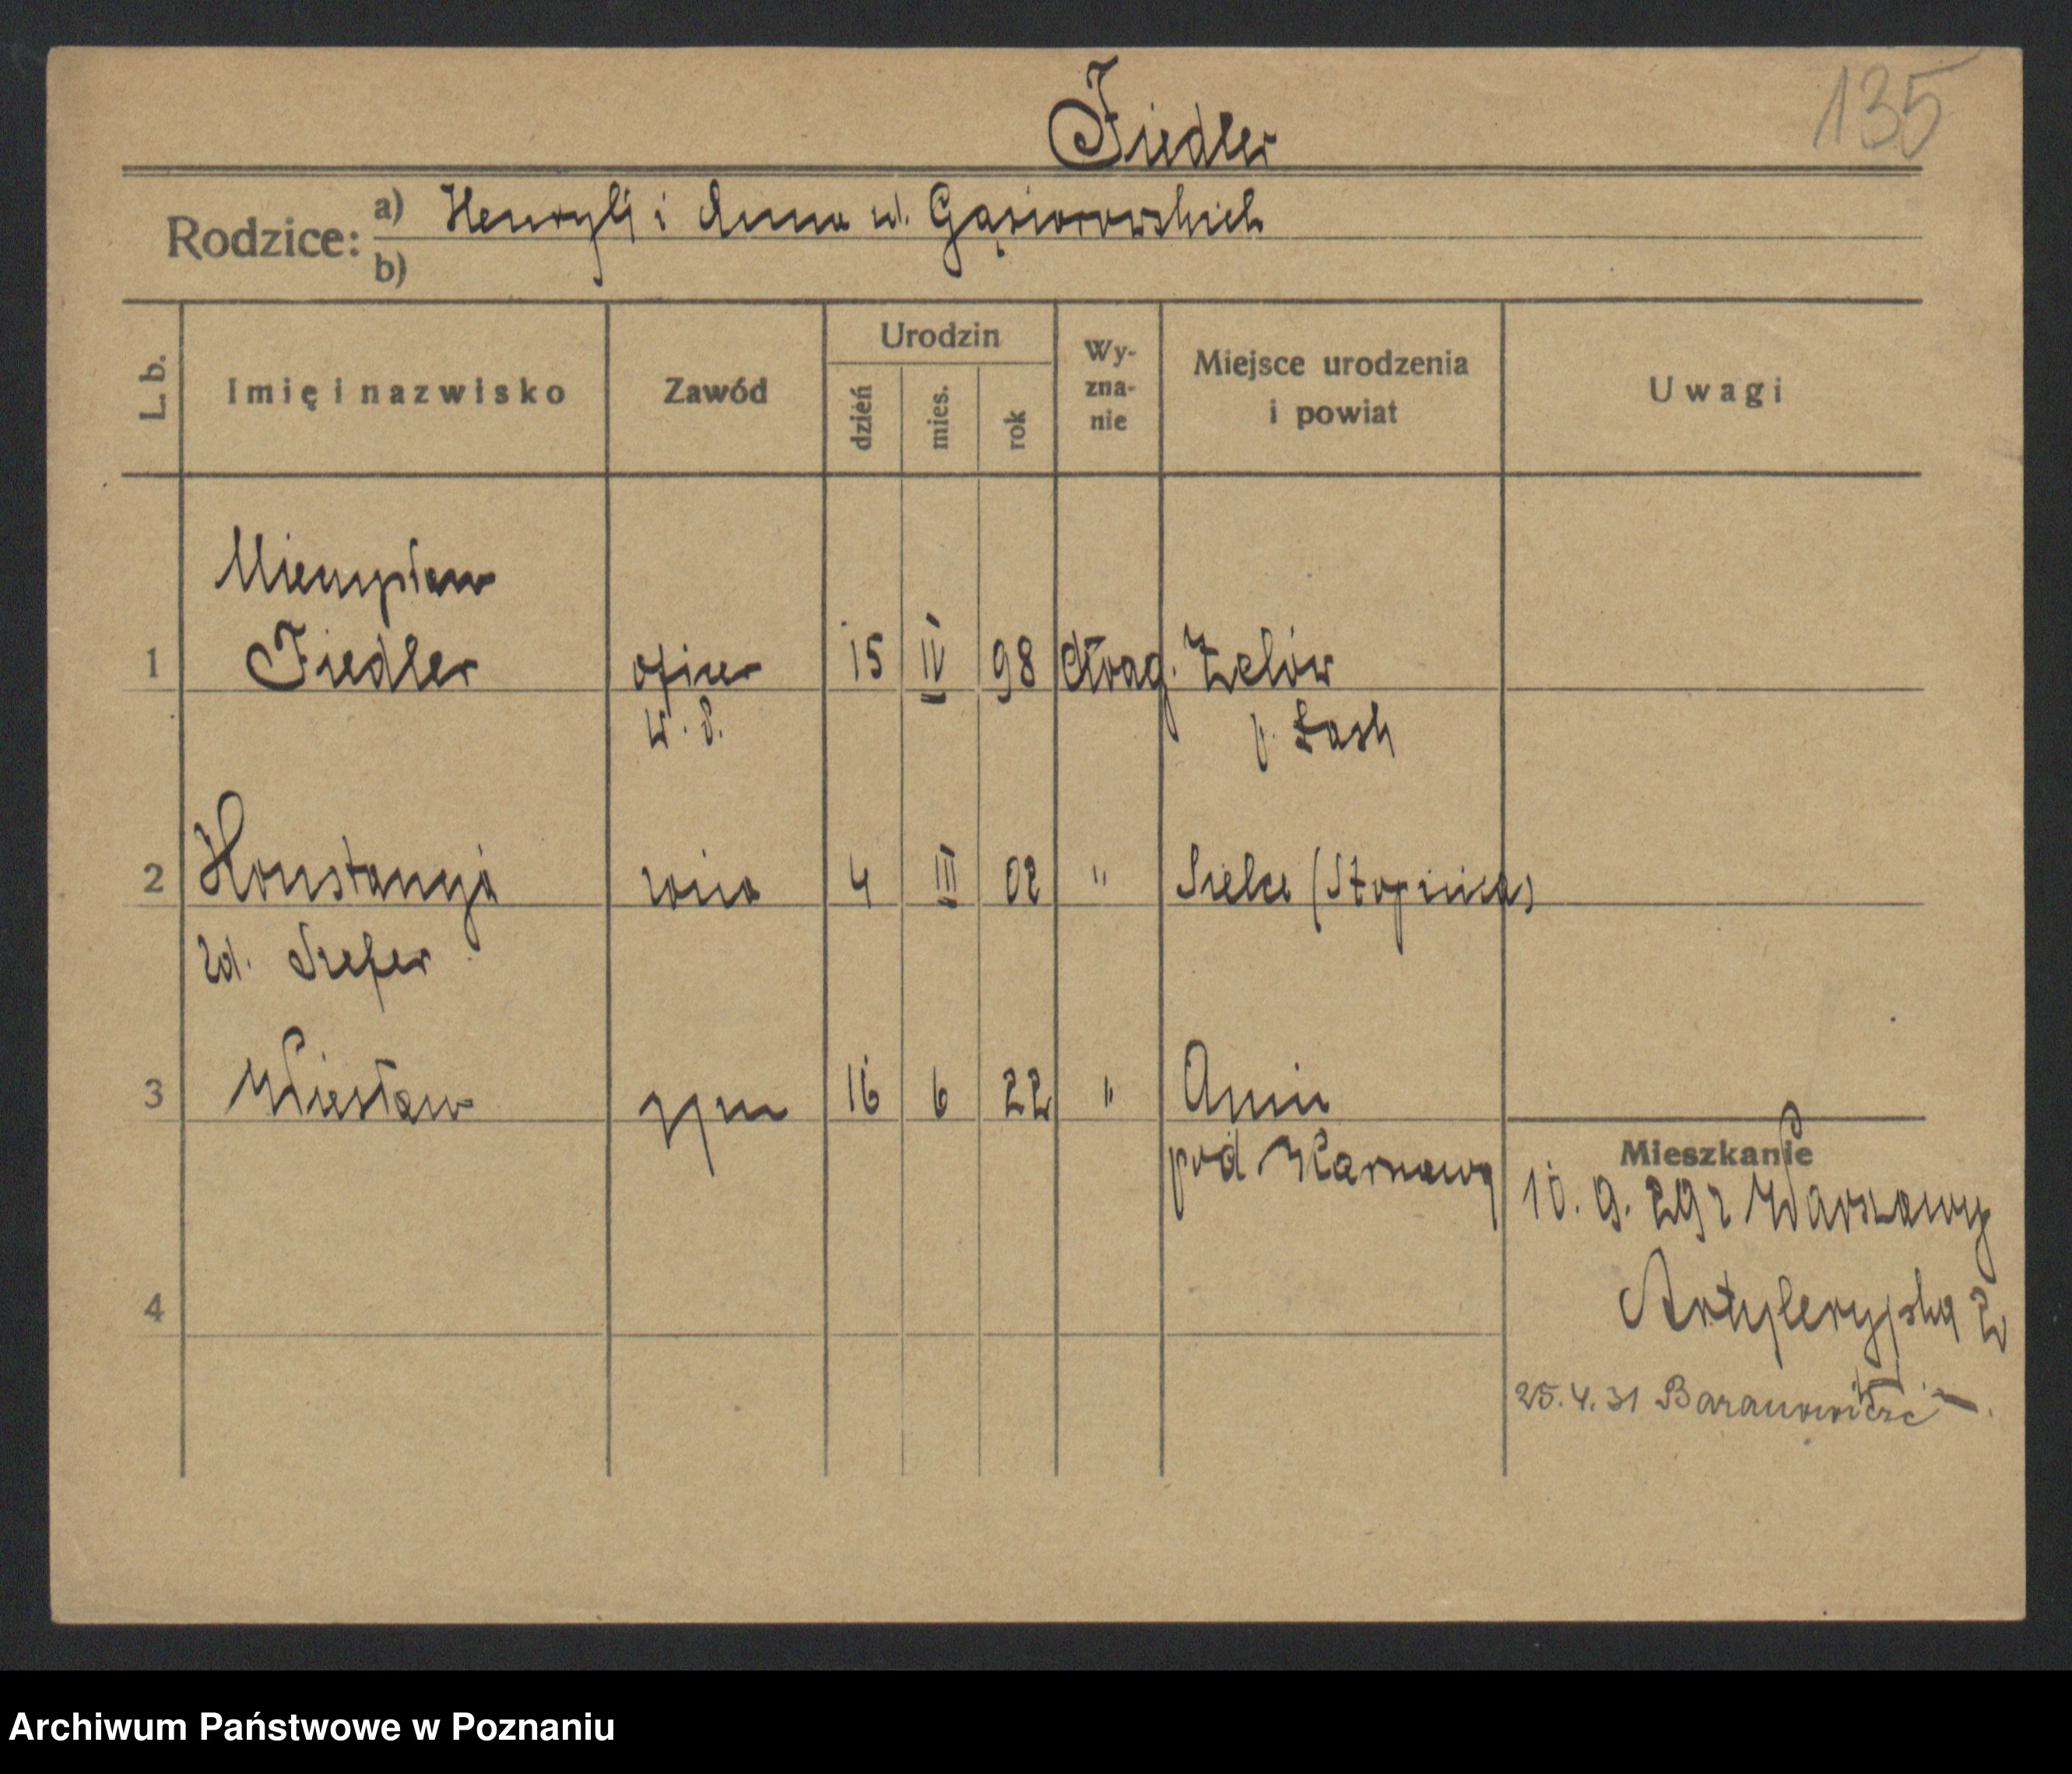 Fiedler
135
Rodzice: a) Henryk i Anna zd. Gąsiorowskich
b)
L. b. Imię i nazwisko Zawód Urodzin dzień mies. rok Wyznanie Miejsce urodzenia i powiat Uwagi
Mieczysław
1 Fiedler oficer 15 IV 98 Zelów
W. P. p. Łask
2 Konstancja żona 4 III 02 " Sielce (Stopnica)
zd. Szefer
3 Wiesław syn 16 6 22 "
pod
Mieszkanie
10. 9. 29 z Warszawy
Artyleryjska 2
4
25.4.31 Baranowicze
Archiwum Państwowe w Poznaniu